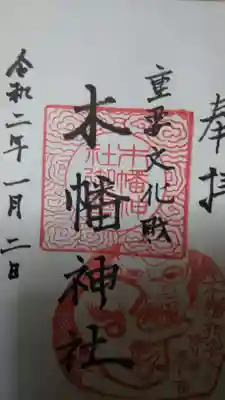 奉拝
重要文化財
木幡神社
令和二年一月二日
木幡神
社